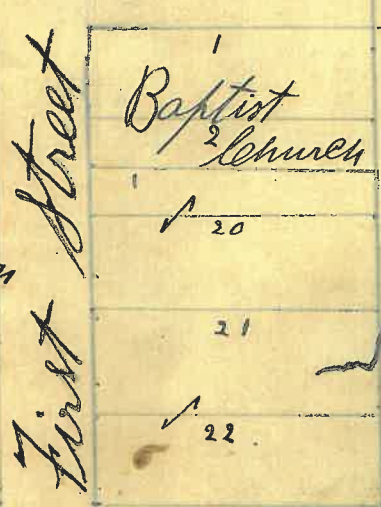 First Street
1
Baptist
2 Church
20
21
22